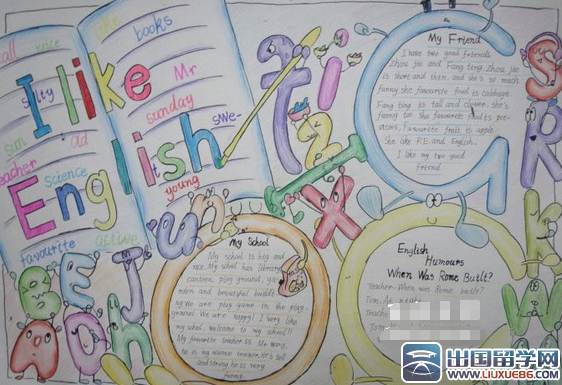 call nice like books
I like
silly Mr
sunday
sun old swe-
English
teacher science
young
favourite active
My Friend
I have two good friends.
Zhou Jie and Fang ting. Zhou Jie
is short and thin. and she's so much
funny she favourite fruit is cabbage
Fang ting is tall and clever. she's
funny too she favourite food is pot-
atoes, Favourite fruit is apple.
She like P.E. and English.
I like my two good
friend
My School
My school is big and
nice. My school has library,
canteen, play ground, ga-
rden and beautiful buildi-
ng. We are play game in the play-
ground. We are happy! I very like
my school. Welcome to my school!!
My favourite teacher is Mr Wang.
English
Humours
When Was Rome Built?
Teacher: When was Rome built?
Tom: At night.
Teacher
Tom
B E J
A o h
un
G
S
R
K
W
出国留学网
WWW.LIUXUE86.COM